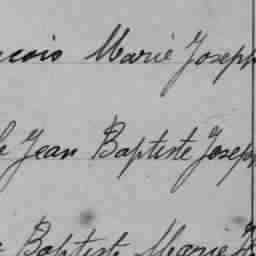 çois Marie Joseph
Jean Baptiste Joseph
Baptiste Marie